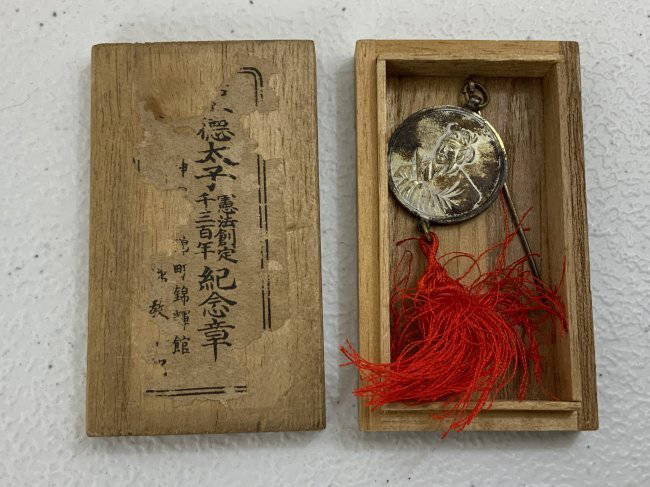 德太子
憲法創定
千三百年
紀念章
町錦輝館
教